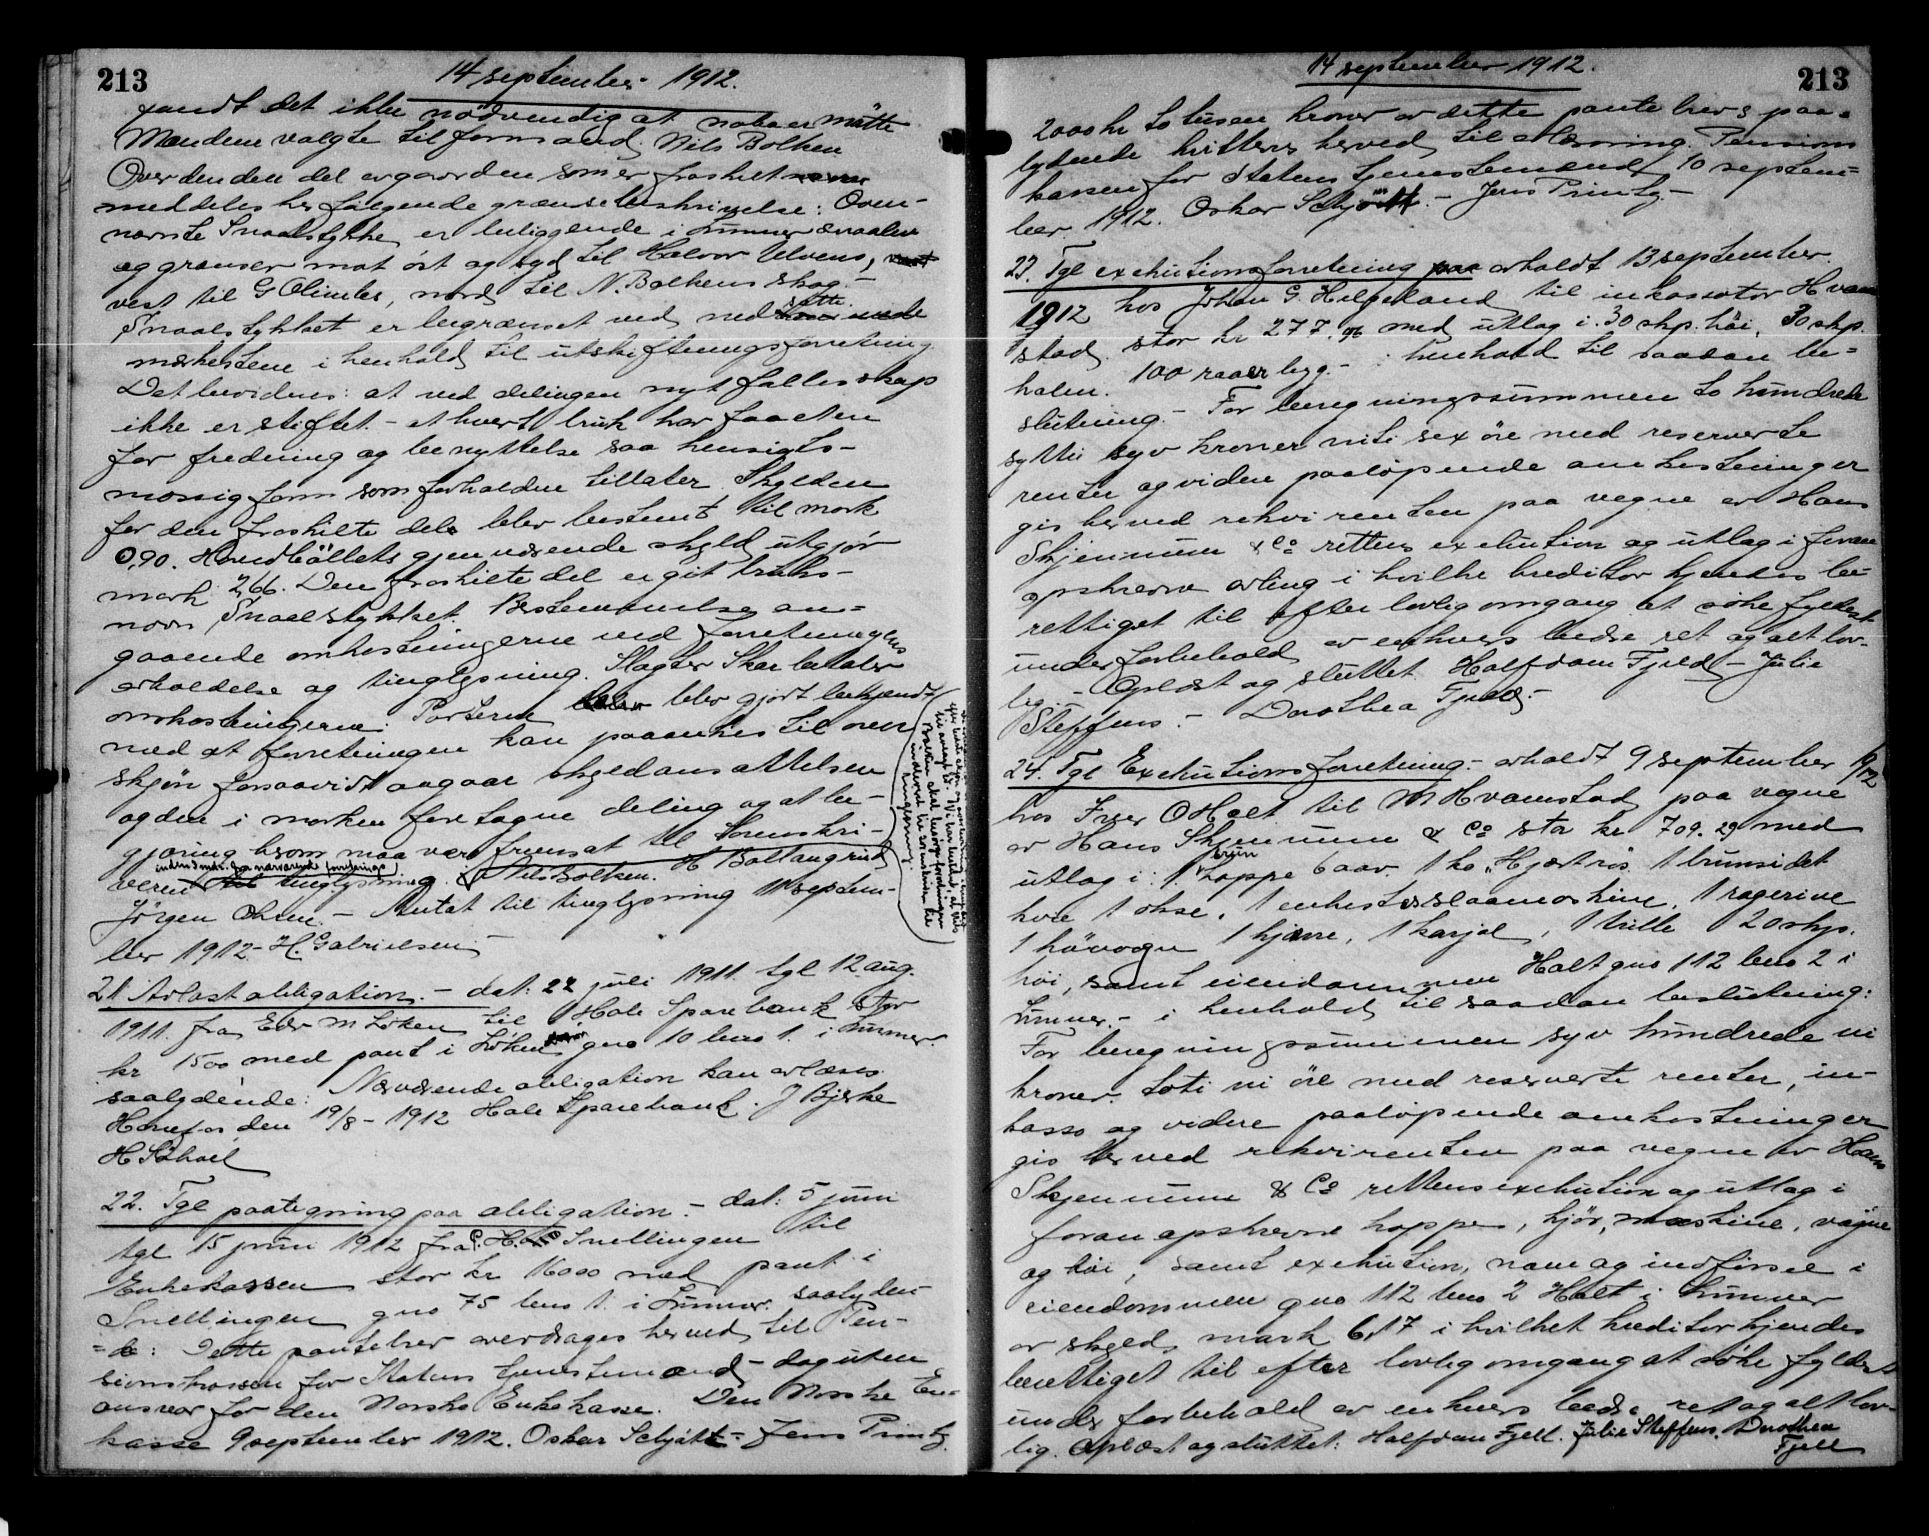 213
14 september 1912.
fandt det ikke nödvendig at naboer mötte
Mændene valgte til formand Nils Bolken
Over den den del av gaarden som er fraskilt
meddeles her følgende grænsebeskrivelse: Oven-
nævnte Snaalstykke er beliggende i Lunner
og grænser mot öst og syd til Halvor Ulvens,
vest til G Olimbs, nord til N. Bolkens skog. -
Snaalstykket er begrænset ved nedsatte
merkestene i henhold til utskiftningsforretning.
Det bevidnes: at ved delingen nyt fællesskap
ikke er stiftet. - at hvert bruk har faaet en
for fredning og benyttelse saa hensigts-
mæssig form som forholdene tillater. Skylden
for den fraskilte del blev bestemt til mark
0,90. Hovedböllets gjenværende skyld utgjör
mark 2,66. Den fraskilte del er git bruks-
navn Snaalstykket. Bestemmelse an-
gaaende omkostningerne ved forretningens
avholdelse og tinglysning. Slagter Skar betaler
omkostningerne. Parterne blev gjort bekjendt
med at forretningen kan paaankes til over
skjön forsaavidt angaar skyldansættelsen
og den i marken foretagne deling og at be-
gjæring herom maa være fremsat til Sorenskri-
veren inden 3 mdr. fra nærværende forretnings tinglysning. Nils Bolken. H Ballangrud
Jörgen Olsen. - Antat til tinglysning 11 septem-
ber 1912 - H. Gabrielsen -
21 Avlæst obligation. - dat: 22 juli 1911. tgl 12 aug.
1911. fra Edv M Løken til Hole Sparebank stor
kr 1500 med pant i Løken gno 10 bno 1. i Lunner.
saalydende: Nærværende obligation kan avlæses.
Hönefos den 19/8 - 1912 Hole Sparebank. J Bjerke
H Sohoel
22. Tgl paategning paa obligation. - dat: 5 juni
tgl 15 juni 1912 fra C. H. Snellingen til
Enkekassen stor kr 16000 med pant i
Snellingen gno 75 bno 1. i Lunner. saalyden-
=de: Dette pantebrev overdrages herved til Pen-
sionskassen for Statens tjenestemænd - dog uten
ansvar for den Norske Enkekasse. Den Norske En-
kasse 9 september 1912. Oskar Schjött - Jens Printz
213
14 september 1912.
2000 kr to tusen kroner av dette pantebrevs paa-
lydende kvitteres herved til avlæsning. Pensions
kassen for Statens tjenestemænd 10 septem=
ber 1912. Oskar Schjött. - Jens Printz. -
23. Tgl exekutionsforretning avholdt 13 september
1912 hos Johan G. Helgeland til inkassator Hvam
stad stor kr 277.96 med utlæg i: 30 skp. høi, 30 skp.
halm. 100 raaer bygg. - i henhold til saadan be=
slutning. - For beregningssummen to hundrede
sytti syv kroner nitisex öre med reserverte
renter og videre paalöpende omkostninger
gis herved rekvirenten paa vegne av Hans
Skjennum & Co rettens exekution og utlæg i foran
opskrevne avling i hvilke kreditor kjendes be-
rettiget til efter lovlig omgang at söke fyldest
under forbehold av enhvers bedre ret og alt lov-
lig. - Oplæst og sluttet. Halfdan Fjeld - Julie
Steffens. - Dorothea Fjeld. -
24. Tgl Exekutionsforretning. - avholdt 9 september 1912
hos Iver O Holt til M Hvamstad paa vegne
av Hans Skjennum & Co sto kr 709.29 med
utlæg i: 1 brun hoppe 6 aar. 1 ko "Hjertros. 1 brunsidet
kvie 1 okse. 1 enhestes slaamaskine. 1 rageriue
1 høvogn 1 kjærre, 1 karjol, 1 trille 120 skp.
høi, samt eiendommen Holt gno 112 bno 2 i
Lunner. - i henhold til saadan beslutning:
For beregningssummen syv hundrede ni
kroner toti ni öre med reserverte renter, in-
kasso og videre paalöpende omkostninger
gis herved rekvirenten paa vegne av Hans
Skjennum & Co rettens exekution og utlæg i
foran opskrevne hoppe, kjör, maskine, vogne
og høi, samt exekution, nam og indförsel i
eiendommen gno 112 bno 2 Holt i Lunner
av skyld mark 6,17 i hvilket kreditor kjendes
berettiget til efter lovlig omgang at söke fyldest
under forbehold av enhvers bedre ret og alt lov-
lig. Oplæst og sluttet: Halfdan Fjell. Julie Steffens. Dorothea
Fjell